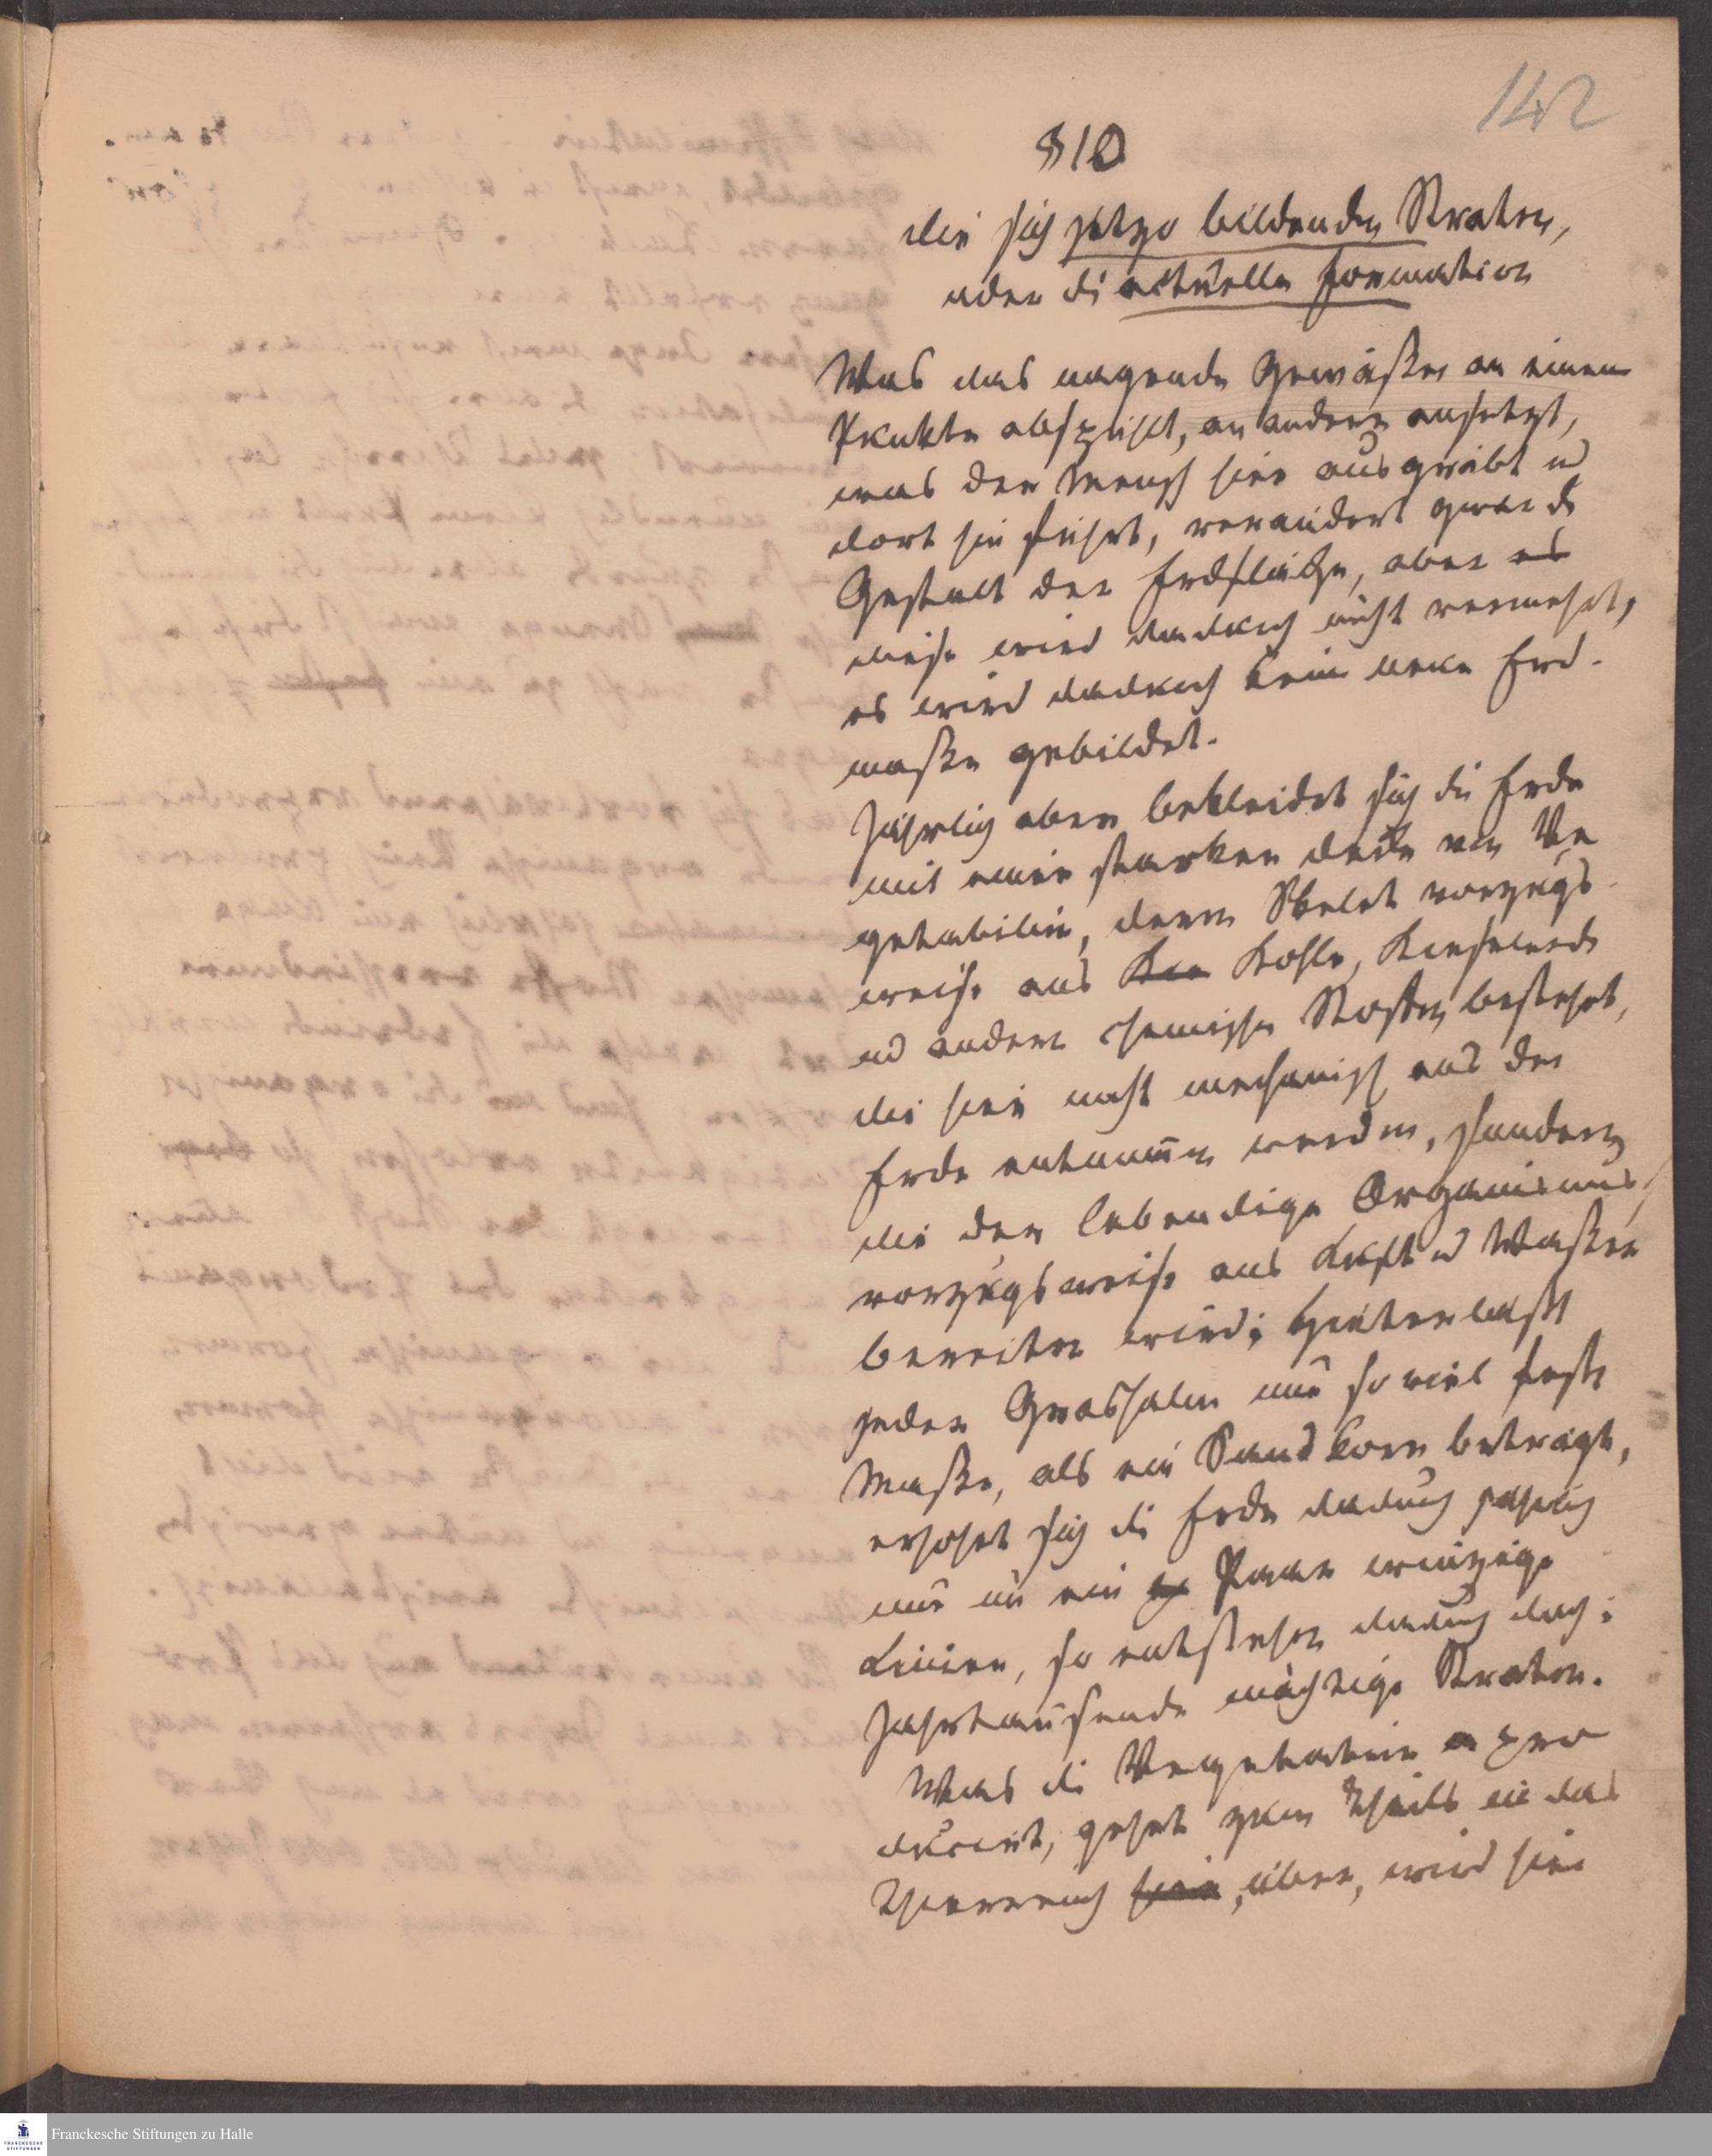 142
§ 10
die sich jetzo bildenden Straten,
oder die actuelle Formation
Was das nagende Gewäßer an einem
Punkte abspühlt, an andern ansetzt,
was der Mensch hier ausgräbt und
dort hin führt, verändert zwar die
Gestalt der Erdfläche, aber es
diese wird dadurch nicht vermehrt,
es wird dadurch kein neue Erd-
maße gebildet.
Jährlich aber bekleidet sich die Erde
mit einer starken Decke von Ve
getabilien, deren Skelet vorzugs
weise aus Kohle, Kieselerde
und andern chemischen Stoffen besteht,
die hier nicht mechanisch aus der
Erde entnommen werden, sondern
die der lebendige Organismus
vorzugsweise aus Luft und Waßer
bereiten wird; hinterlaßt
jeder Grashalm nur so viel feste
Maße, als ein Sandkorn betragt,
erhohet sich die Erde dadurch jahrlich
nur um ein Paar winzige
Linien, so entstehen dadurch doch in
Jahrtausende mächtige Straten.
Was die Vegetation pro
ducirt, gehet zum Theils in das
Thierreich über, wird hier
Franckesche Stiftungen zu Halle